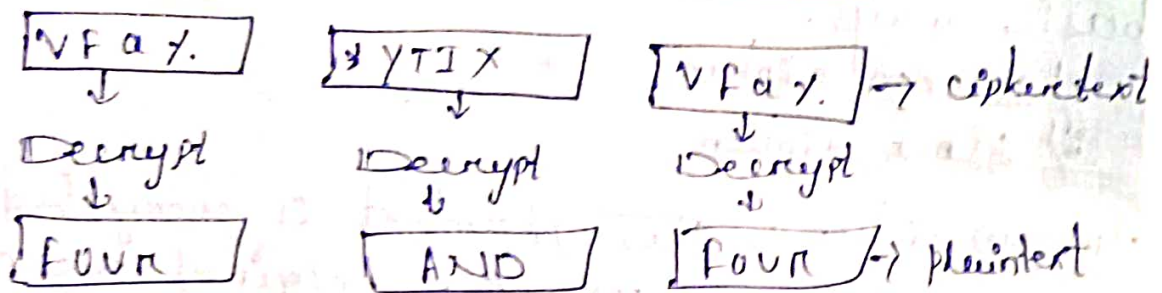 VFa%. YTIX VFa%. → ciphertext
Decrypt Decrypt Decrypt
FOUR AND FOUR → plaintext